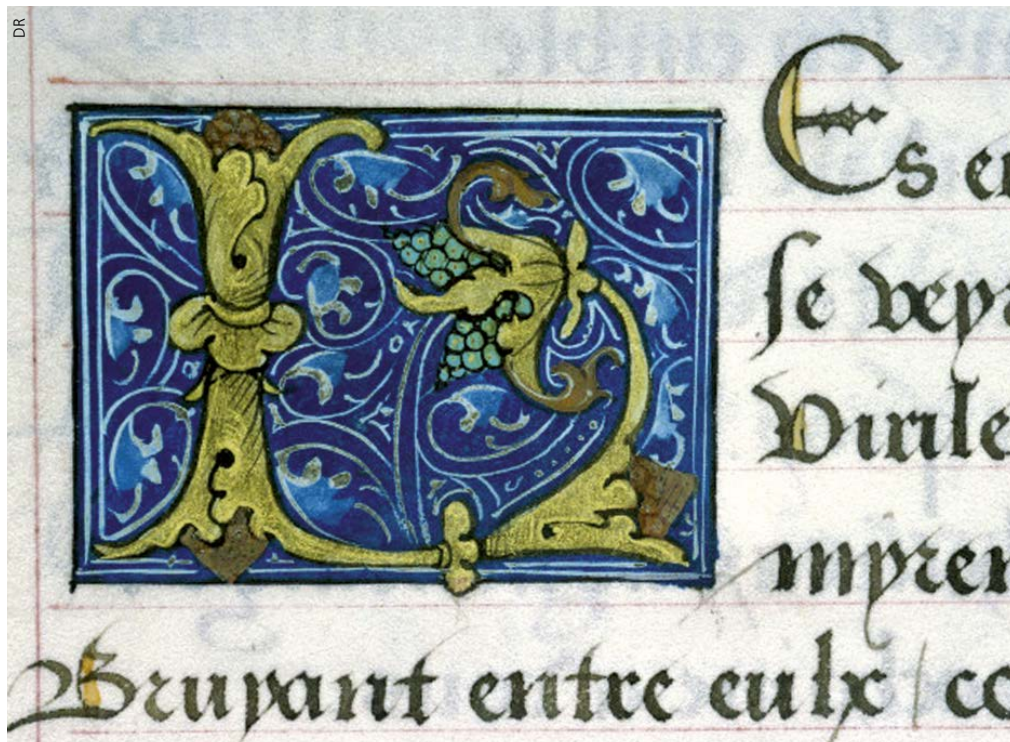 DR
L Es en
se veyr
Virile
mpren
Bruyant entre eulx / co